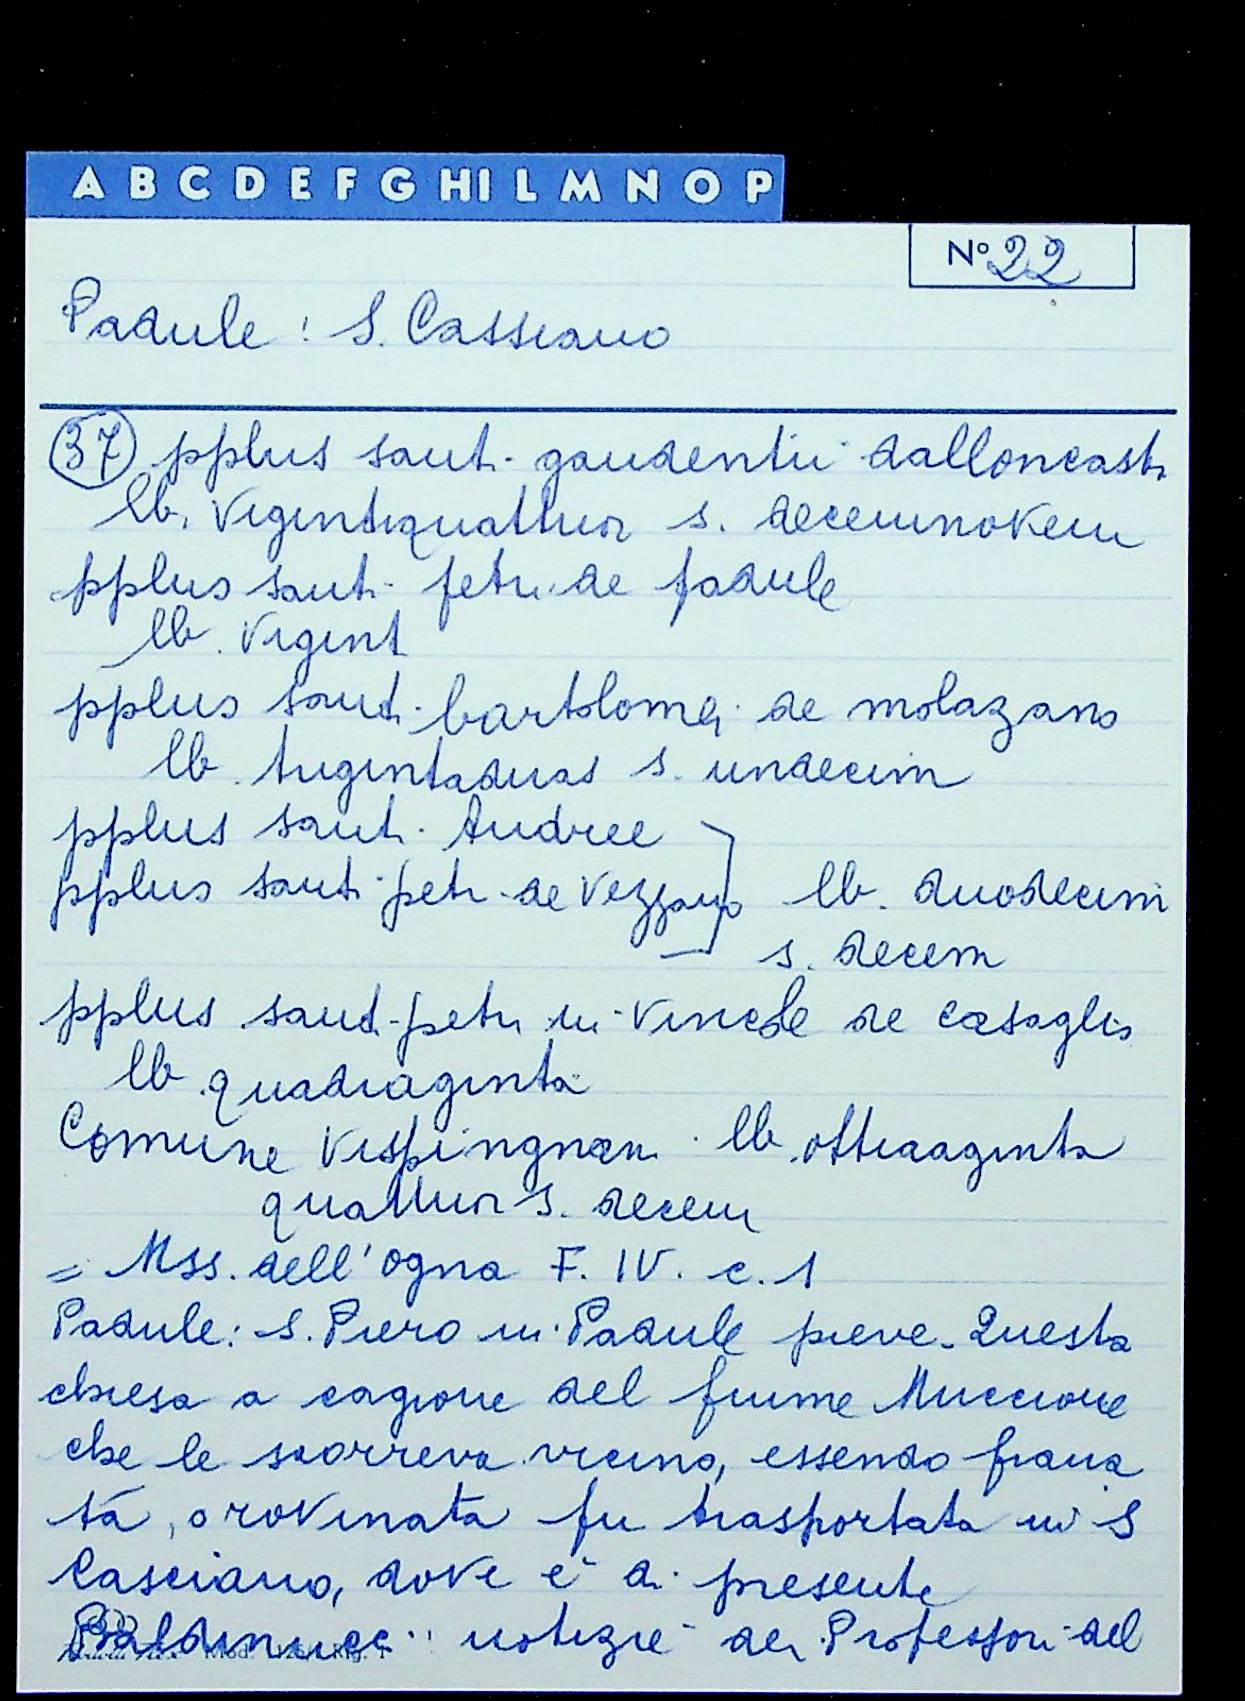 A B C D E F G HI L M N O P
N° 22
Padule : S. Cassiano
37 pplus sant. gaudentii dalloncastr
lb. vigintiquattuor s. decemnovem
pplus sant. petri de padule
lb. vigint
pplus sant. bartolomei de molazano
lb. trigintaduas s. undecim
pplus sant. Andree
pplus sant. petri de Vezzano lb. duodecim
s. decem
pplus sant. petri in Vincole de casaglis
lb quadraginta
Comune Vispingnan. lb. ottraaginta
quattuor s. decem
= Mss. dell'Ogna F. IV. c. 1
Padule: S. Piero in Padule pieve. Questa
chiesa a cagione del fiume Muccione
che le scorreva vicino, essendo frana
ta, o rovinata fu trasportata in S
Casciano, dove è di presente
Baldinucci: notizie dei Professori del